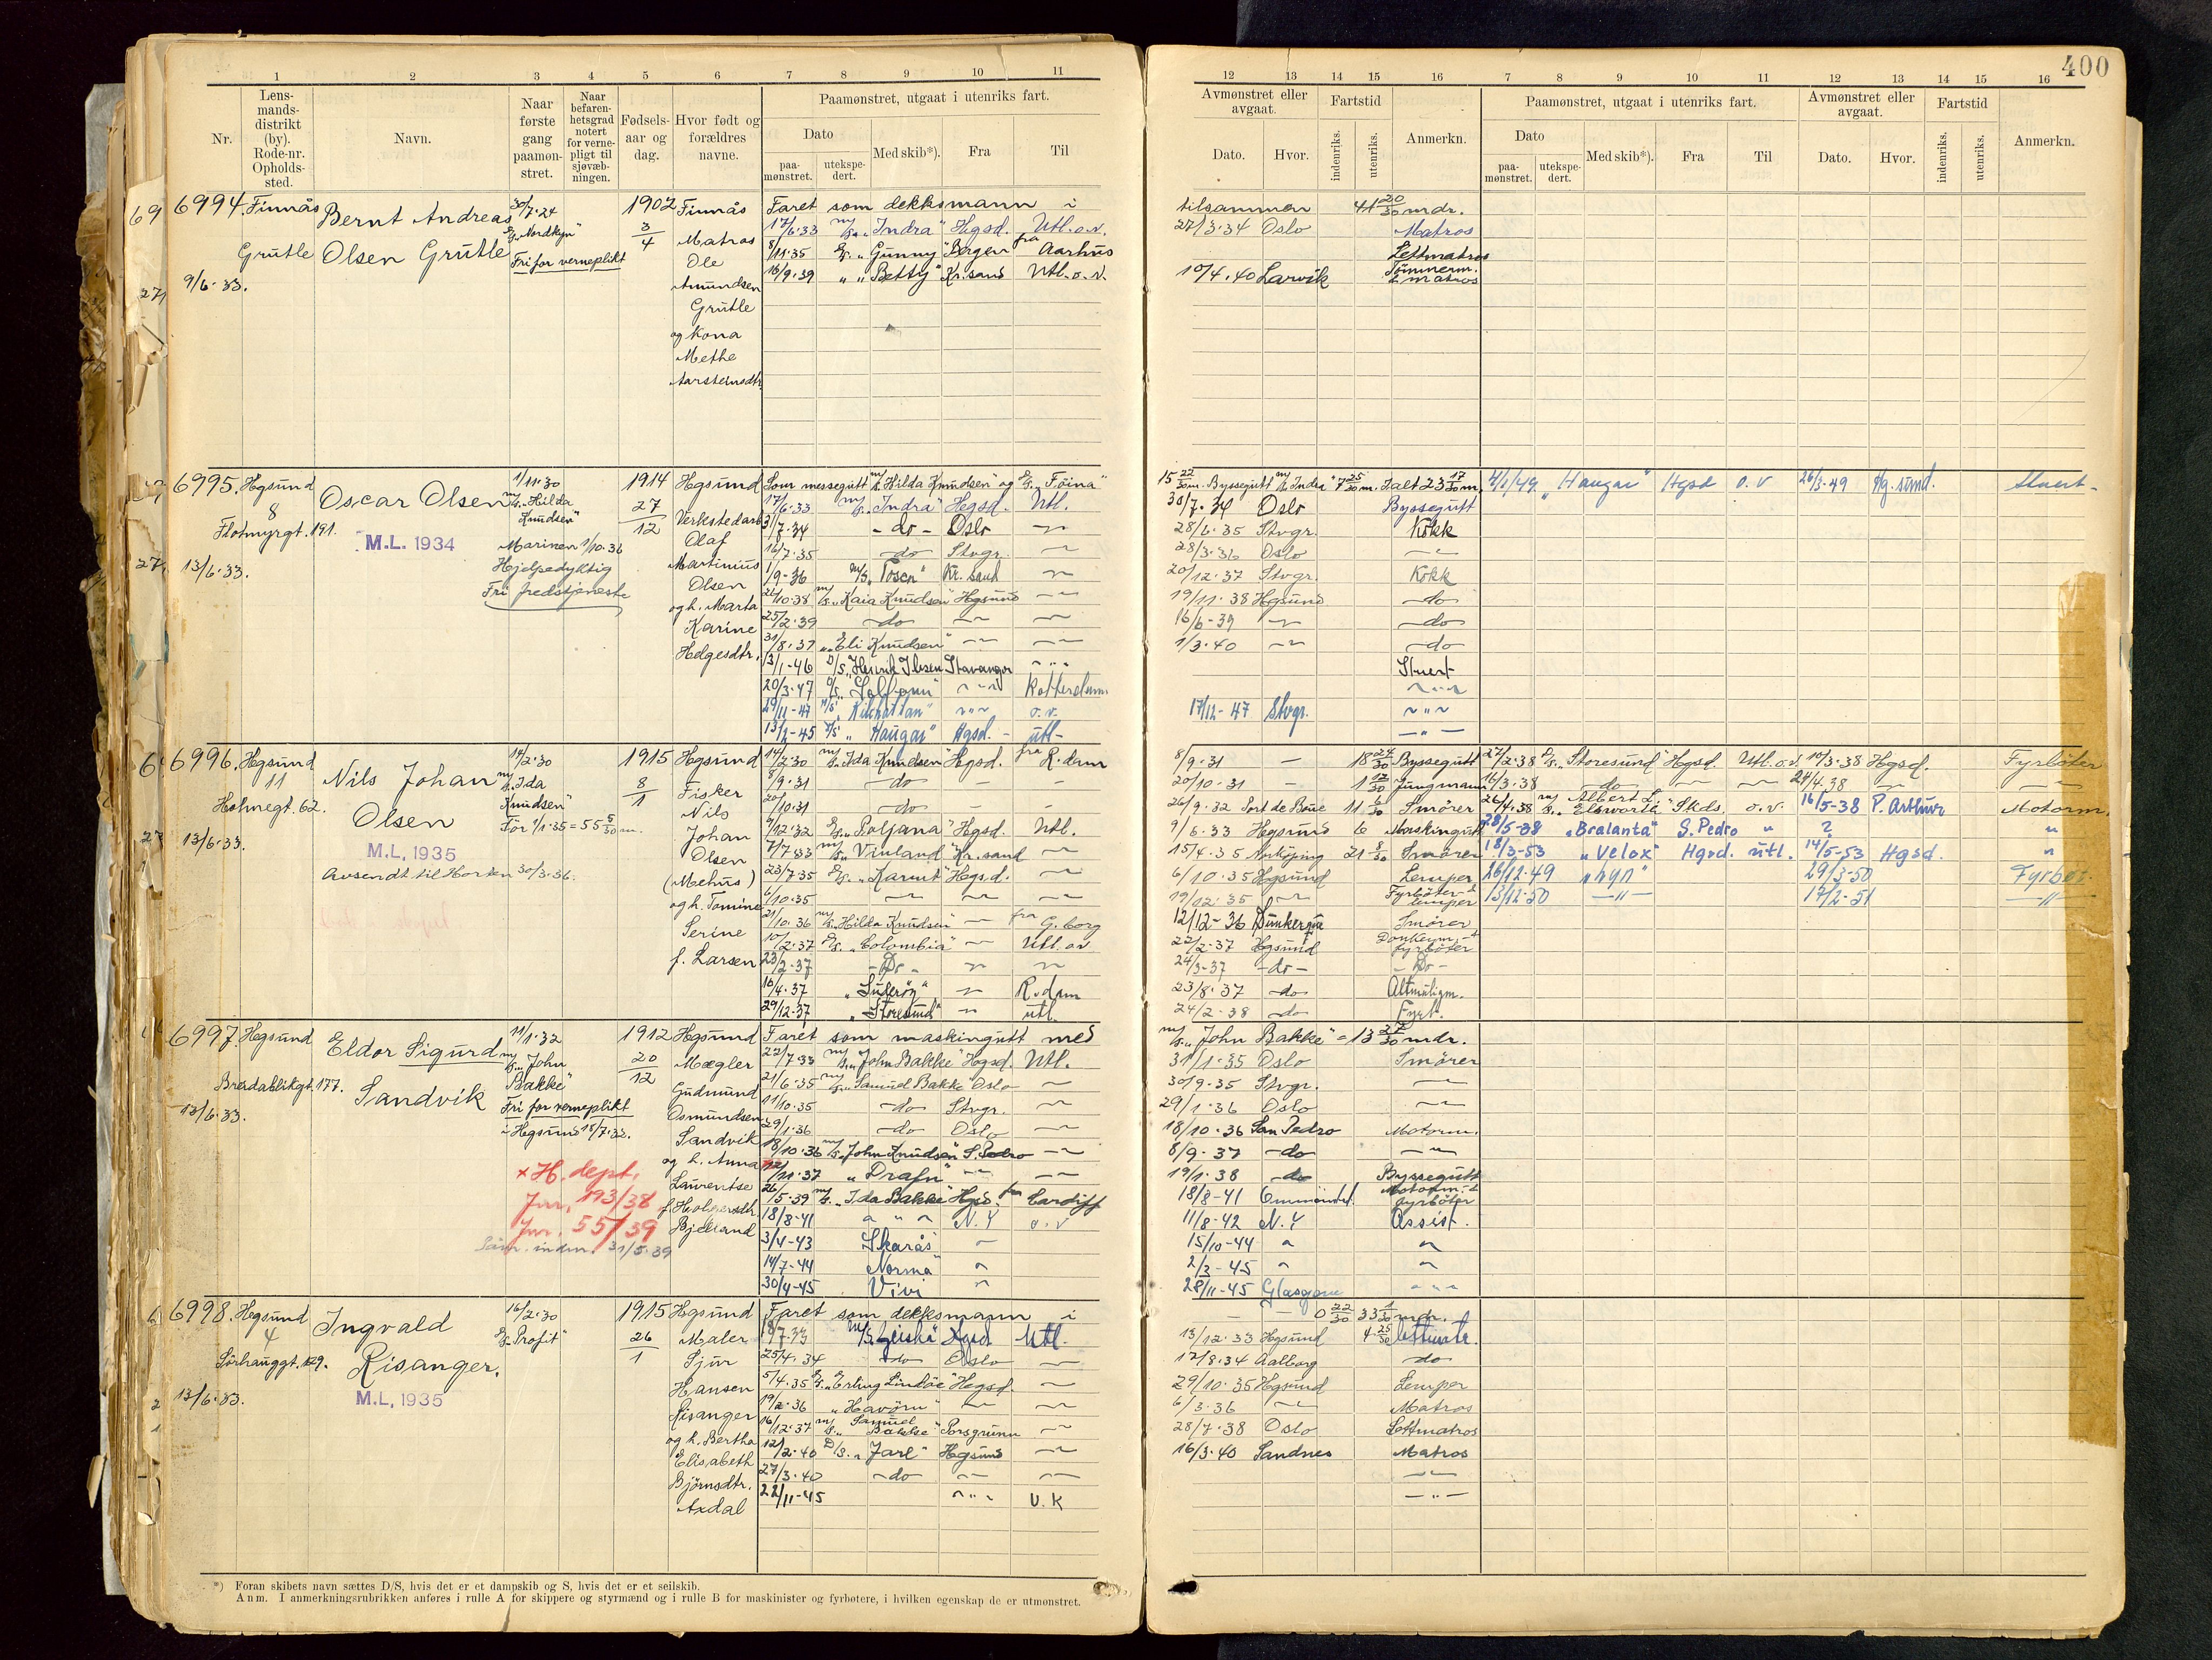 400
1 2 3 4 5 6 7 8 9 10 11
Nr.
Lens-
mands-
distrikt
(by).
Rode-nr.
Opholds-
sted.
Navn.
Naar
første
gang
paamøn-
stret.
Naar
befaren-
hetsgrad
notert
for verne-
pligt til
sjøvæb-
ningen.
Fødsels-
aar og
dag.
Hvor født og
forældres
navne.
Paamønstret, utgaat i utenriks fart.
Dato
paa-
mønstret.
utekspe-
dert.
Med skib*).
Fra
Til
12 13 14 15 16 7 8 9 10 11 12 13 14 15 16
Avmønstret eller
avgaat.
Dato.
Hvor.
Fartstid
indenriks.
utenriks.
Anmerkn.
Paamønstret, utgaat i utenriks fart.
Dato
paa-
mønstret.
utekspe-
dert.
Med skib*).
Fra
Til
Avmønstret eller
avgaat.
Dato.
Hvor.
Fartstid
indenriks.
utenriks.
Anmerkn.
6994. Finnås
Grutle
9/6.33.
Bernt Andreas
Olsen Grutle
30/7.24
D/S. „Nordkyn"
Fri for verneplikt
1902
3/4
Finnås
Matros
Ole
Amundsen
Grutle
og Kona
Methe
Aarsteinsdtr.
Faret som dekksmann i tilsammen 41 20/30 mdr.
17/6.33 M/S. „Indra" Hgsd. Utl.o.v. 27/3.34 Oslo Matros
8/11.35 D/S. „Gunny" Bergen fra Aarhus Lettmatros
16/9.39 „ „Betty" Kr.sand Utl.o.v. 10/4.40 Larvik Tömmerm.
2 matros
6995. Hgsund
8
Flotmyrgt. 191.
13/6.33.
Oscar Olsen
M.L. 1934
1/11.30
M/S. „Hilda
Knudsen"
Marinen 1/10.36
Hjelpedyktig
Fri fredstjeneste
1914
27/12
Hgsund
Verkstedarb.
Olaf
Martinius
Olsen
og h. Marta
Karine
Helgesdtr.
Som messegutt M/S. Hilda Knudsen" og D/S. „Föina" 15 22/30 m. Byssegutt M/S. Indra" 7 25/30 m. Ialt 23 17/30 m.
17/6.33 M/S. „Indra" Hgsd. Utl. 30/7.34 Oslo Byssegutt
31/7.34 - do - Oslo 28/6.35 Stvgr. Kokk
16/7.35 do Stvgr. 28/3.36 Oslo
1/9-36 M/S „Tosca" Kr.sand 20/12.37 Stvgr. Kokk
26/10.38 M/S. „Kaia Knudsen" Hgsund 19/11.38 Hgsund do
25/2.39 do 16/6-39 do
31/8.39 „Eli Knudsen" 1/3.40 do
13/1-46 D/S „Henrik Ibsen Stavanger Stuert
20/3.47 D/S. Rotterdam.
29/11-47 M/S „Kilchattan" o.v. 17/12-47 Stvgr.
13/12-45 „Haugar" Hgsd. utl.
4/1/49. „Haugar" Hgsd o.v 26/3-49 Hg.sund. Stuert
6996. Hgsund
11
Holmegt. 62.
13/6.33.
Nils Johan
Olsen
M.L. 1935
Avsendt til Horten 30/3.36.
14/2.30
M/S. „Ida
Knudsen"
Før 1/1.35 = 55 5/30 m.
1915
8/1
Hgsund
Fisker
Nils
Johan
Olsen
(Mehus)
og h. Tomine
Serine
f. Larsen
14/2.30 M/S. „Ida Knudsen" Hgsd. fra R.dam 8/9.31 18 24/30 Byssegutt
8/9.31 do 20/10.31 1 12/30 Jungmann
20/10.31 do 26/9.32 Port de Boue 11 6/30 Smører
9/12.32 D/S. „Poljana" Hgsd. Utl. 9/6.33 Hgsund 6 Maskingutt
7/7.33 M/S. „Vinland" Kr.sand 15/4.35 Norköping 21 8/30 Smører
23/7.35 D/S. „Karmt" Hgsd. 6/10.35 Hgsund Lemper
6/10.35 19/12.35 Fyrböter-
lemper
21/10.36 M/S. „Hilda Knudsen" fra G.borg 12/12-36 Dunkerque Smører
10/2.37 D/S. „Colombia" Utl.ov 22/2-37 Hgsund Donkeym.
fyrböter
23/2-37 - Do - 24/3-37 - do - - Do -
10/4.37 „Suderøy" R.dam 23/8.37 do Altmuligm.
29/12.37 „Storesund" utl. 24/2-38 do Fyrb.
27/2.38 D/S. „Storesund" Hgsd. Utl.o.v. 10/3.38 Hgsd. Fyrböter
16/3.38 do 24/4.38
26/4.38 M/S. Albert L.
Elsworth" Skds. o.v. 16/5-38 P. Arthur Motorm.
28/5-38 „Bralanta" S. Pedro " ? "
18/3-53 „Velox" Hgsd. utl. 14/5-53 Hgsd. "
26/12.49 „Lyn" 29/3-50 Fyrböt.
13/12-50 17/2-51
6997. Hgsund
Breidablikgt. 177.
13/6.33.
Eldor Sigurd
Sandvik
11/1.32
M/S. „John
Bakke"
Fri for verneplikt
i Hgsund 18/7.32.
x H. dept.
Jnr. 193/38
Jnr. 55/39
31/5.39
1912
20/12
Hgsund
Mægler
Gudmund
Osmundsen
Sandvik
og h. Anna
Laurentse
f. Holgersdtr.
Bjelland
Faret som maskingutt med M/S. „John Bakke" = 13 27/30 mdr.
22/7.33 M/S. „John Bakke" Hgsd. Utl. 31/1.35 Oslo Smører
21/6.35 M/S. „Samuel Bakke" Oslo 30/9.35 Stvgr.
11/10.35 do Stvgr. 29/1.36 Oslo
29/1.36 do Oslo 18/10.36 San Pedro Motorm.
18/10.36 M/S. „John Knudsen" S. Pedro 8/9.37 do
12/11.37 „Drafn" 19/1.38 do Byssegutt
26/5.39 M/S. „Ida Bakke" Hgsd. fra Cardiff 18/8-41 Ommönstret Motorm.
fyrböter
18/8-41 N.Y o.v 11/8-42 N.Y Assist.
3/4-43 Skarås 15/10-44
14/7-44 Norma" 2/3-45
30/4-45 Vivi 28/11-45 Glasgow
6998. Hgsund
4
Sörhauggt. 129.
13/6.33.
Ingvald
Risanger.
M.L. 1935
16/2.30
D/S. „Profit"
1915
26/1
Hgsund
Maler
Sjur
Hansen
Risanger
og h. Bertha
Elisabeth
Björnsdtr.
Axdal
Faret som dekksmann i 0 22/30 33 1/30 mdr.
7.33 M/S „Geisha" Hgsd. Utl. 13/12.33 Hgsund 4 25/30 lettmatr.
25/4.34 do Oslo 17/8.34 Aalborg do
5/4.35 D/S. „Erling Lindöe" Hgsd. 29/10.35 Hgsund Lemper
19/2.36 „Havörn" 6/3.36 Matros
16/12.37 M/S. „Samuel
Bakke" Porsgrunn 28/7.38 Oslo Lettmatros
12/2.40 D/S. „Jarl" Hgsund 16/3.40 Sandnes Matros
27/3.40 do
22/11-45 U.K
*) Foran skibets navn sættes D/S, hvis det er et dampskib og S, hvis det er et seilskib.
Anm. I anmerkningsrubrikken anføres i rulle A for skippere og styrmænd og i rulle B for maskinister og fyrbøtere, i hvilken egenskap de er utmønstret.